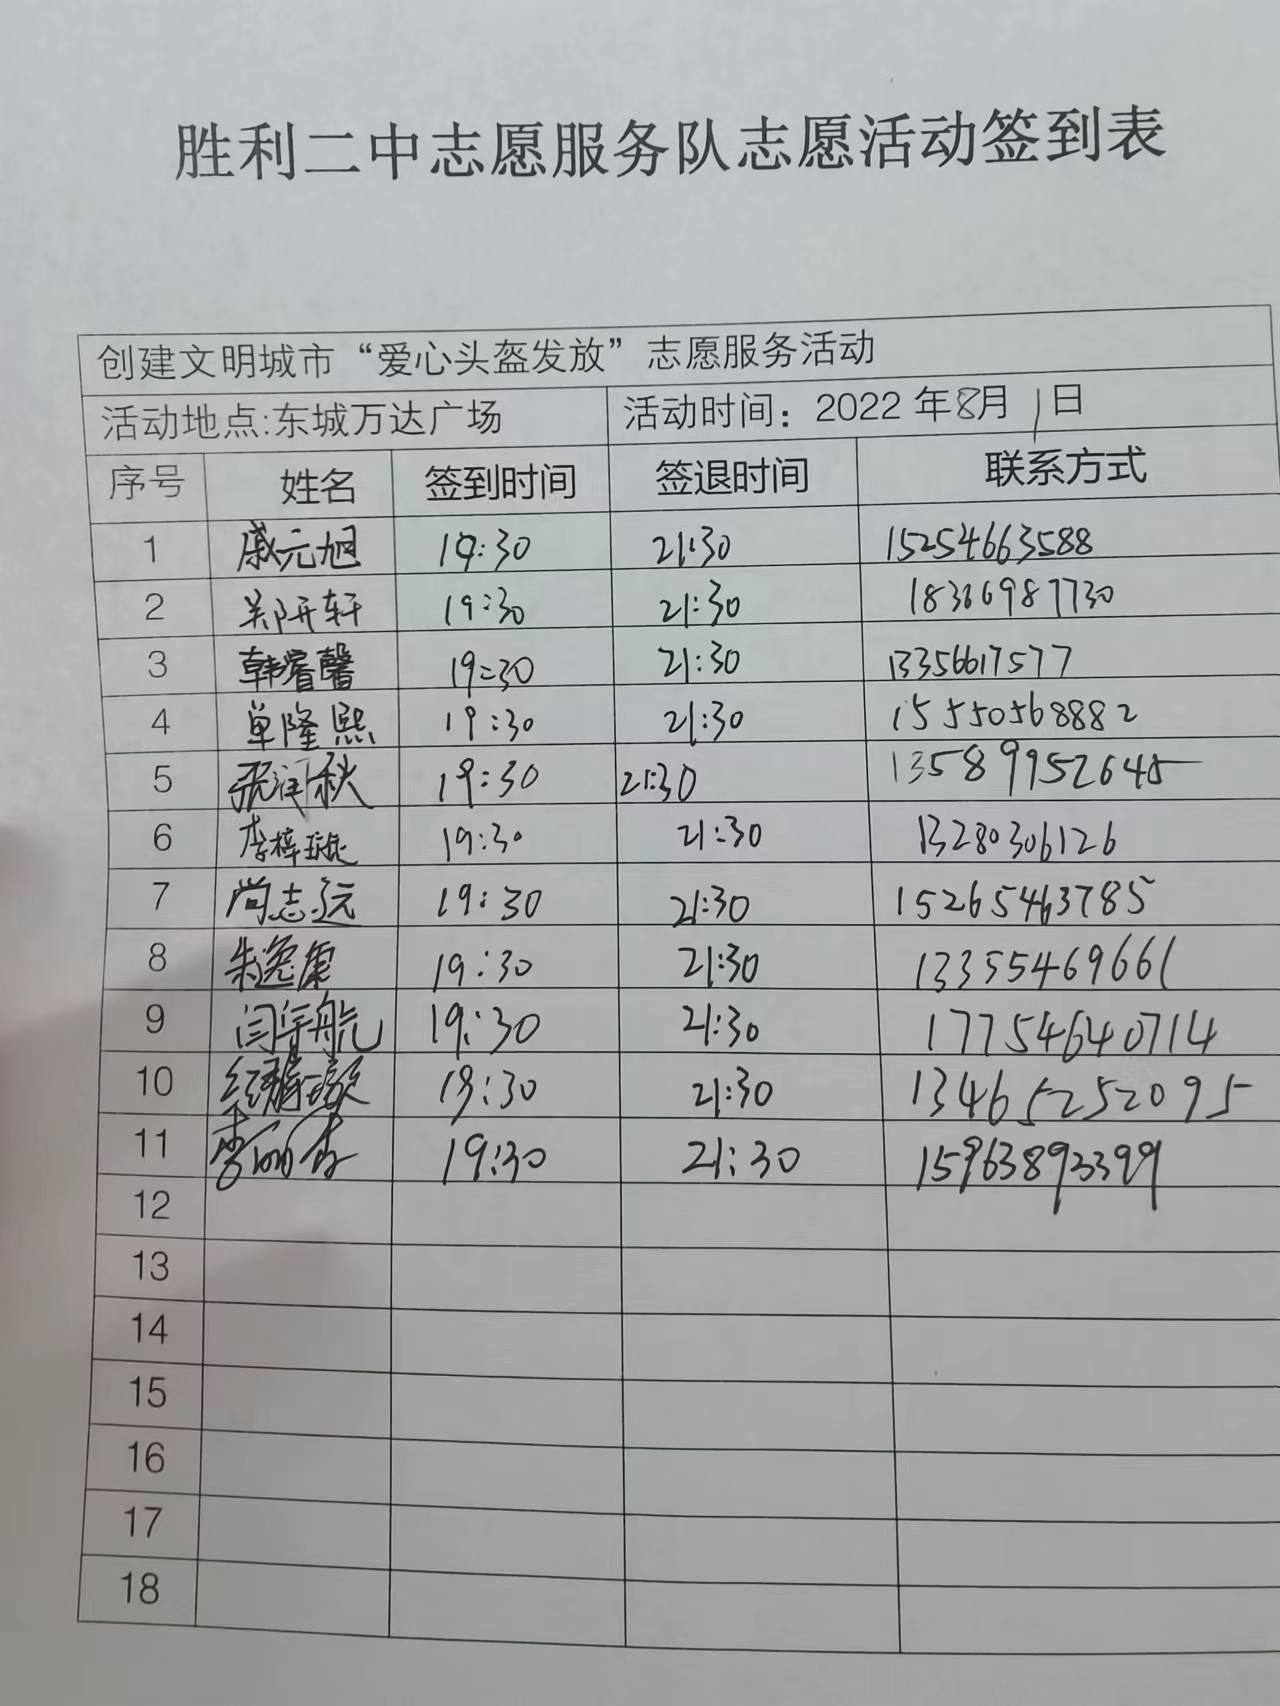 胜利二中志愿服务队志愿活动签到表
创建文明城市“爱心头盔发放”志愿服务活动
活动地点:东城万达广场 活动时间：2022年8月1日
序号 姓名 签到时间 签退时间 联系方式
1 戚元旭 19:30 21:30 15254663588
2 郑开轩 19:30 21:30 18366987730
3 韩睿馨 19:30 21:30 13356617577
4 单隆熙 19:30 21:30 15550568882
5 张润秋 19:30 21:30 13589952645
6 李梓璇 19:30 21:30 13280306126
7 尚志远 19:30 21:30 15265463785
8 朱逸康 19:30 21:30 13355469661
9 闫宇航 19:30 21:30 17754640714
10 19:30 21:30 13465252095
11 19:30 21:30 15963893399
12
13
14
15
16
17
18